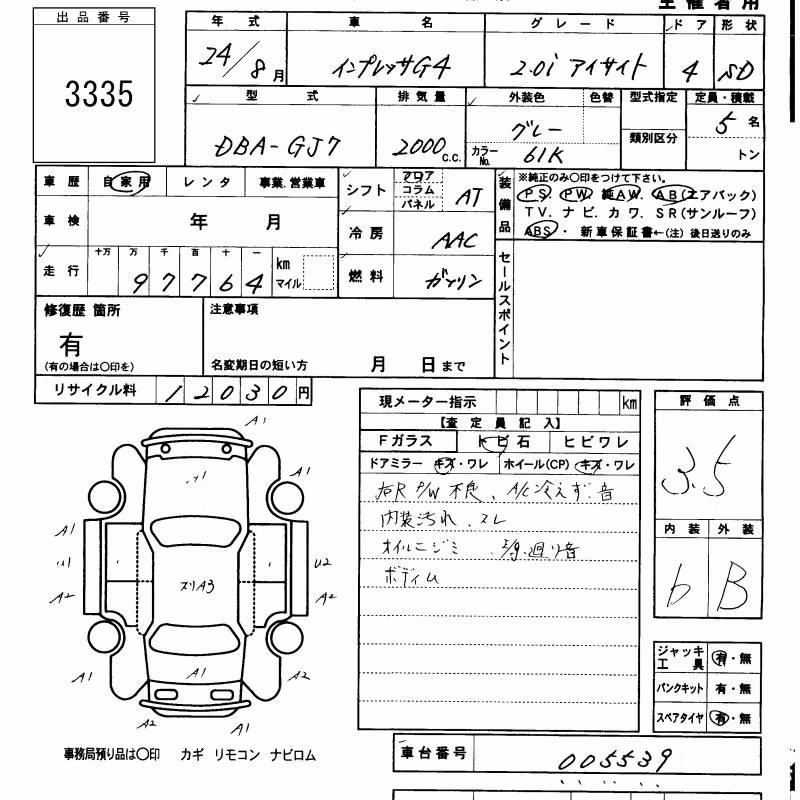 主催者用
出品番号
3335
年式 車名 グレード ドア 形状
24/8月 インプレッサG4 2.0i アイサイト 4 SD
型式 排気量 外装色 色替 型式指定 定員・積載
DBA-GJ7 2000c.c. グレー 5名
カラーNo. 61K 類別区分 トン
車歴 自家用 レンタ 事業.営業車
車検 年 月
走行 十万 万 千 百 十 一
97764 km マイル
シフト フロア コラム パネル AT
冷房 AAC
燃料 ガソリン
装備品 ※純正のみ〇印をつけて下さい。
PS. PW. 純AW. AB(エアバック)
TV. ナビ. カワ. SR(サンルーフ)
ABS・ 新車保証書←(注) 後日送りのみ
セールスポイント
修復歴 箇所 注意事項
有
(有の場合は〇印を) 名変期日の短い方 月 日まで
リサイクル料 12030円
現メーター指示 km
【査定員記入】
Fガラス トビ石 ヒビワレ
ドアミラー キズ・ワレ ホイール(CP) キズ・ワレ
右R P/W 不良、A/C冷えず.音
内装汚れ、スレ
オイルニジミ 廻り音
ボディム
評価点
3.5
内装 外装
b B
ジャッキ工具 有・無
パンクキット 有・無
スペアタイヤ 有・無
A1
A1
A1
U2
A2
A2
スリA3
A1
A1
A1
A2
A1
事務局預り品は〇印 カギ リモコン ナビロム
車台番号 005539